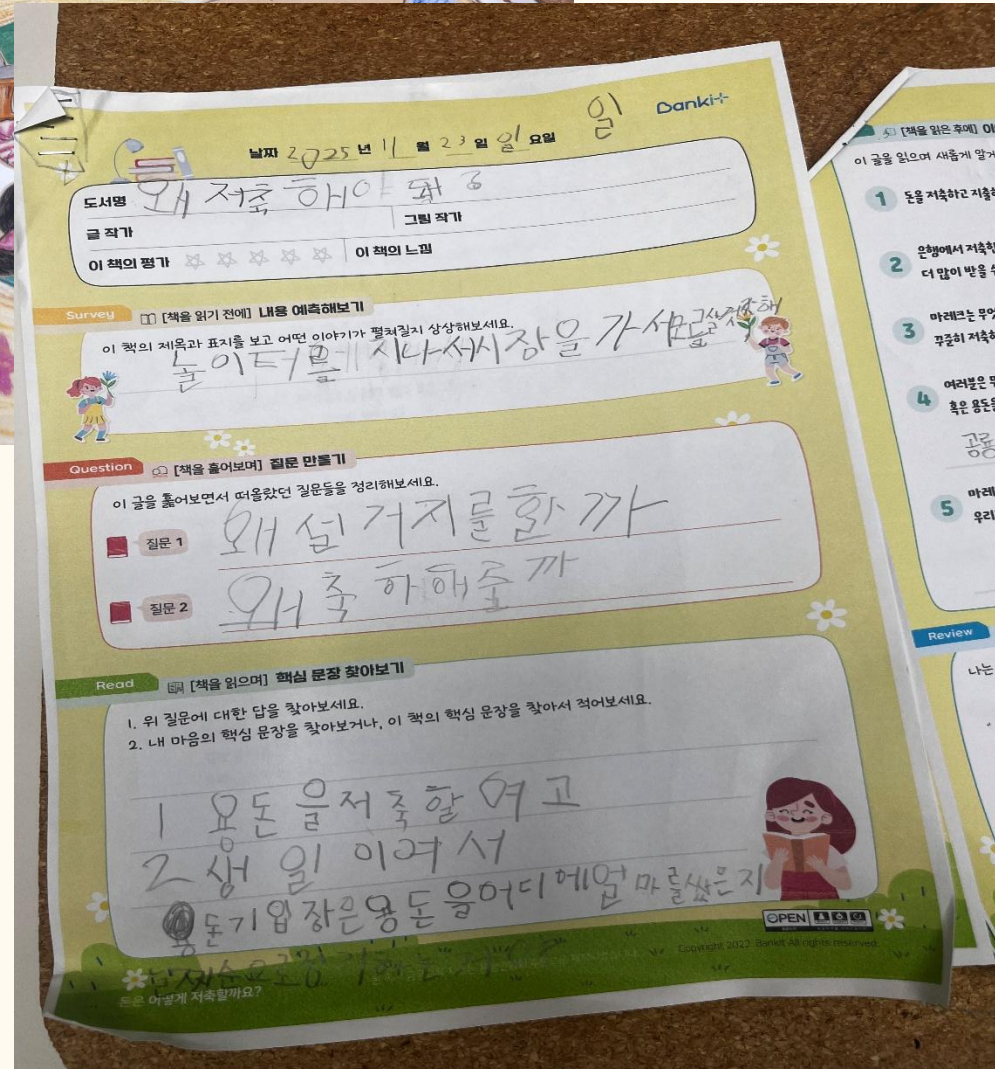 일
Bankit
날짜 2025 년 11 월 23 일 일 요일
도서명 왜 저축 해야 돼
글 작가 그림 작가
이 책의 평가 ☆ ☆ ☆ ☆ ☆ 이 책의 느낌
Survey [책을 읽기 전에] 내용 예측해보기
이 책의 제목과 표지를 보고 어떤 이야기가 펼쳐질지 상상해보세요.
놀이터를 지나서시장을 가서
Question [책을 훑어보며] 질문 만들기
이 글을 훑어보면서 떠올랐던 질문들을 정리해보세요.
질문 1 왜 설거지를할까
질문 2 왜 축하해줄까
Read [책을 읽으며] 핵심 문장 찾아보기
1. 위 질문에 대한 답을 찾아보세요.
2. 내 마음의 핵심 문장을 찾아보거나, 이 책의 핵심 문장을 찾아서 적어보세요.
1 용돈을저축할여고
2 생일이여서
용돈기입장은용돈을어디에얼마를썼은지
OPEN
Copyright 2022. Bankit All rights reserved.
돈은 어떻게 저축할까요?
[책을 읽은 후에]
이 글을 읽으며 새롭게 알게
1 돈을 저축하고 지출
2 은행에서 저축한
더 많이 받을 수
3 마레크는 무엇
꾸준히 저축하
4 여러분은 무
혹은 용돈을
공룡
5 마레
우리
Review
나는